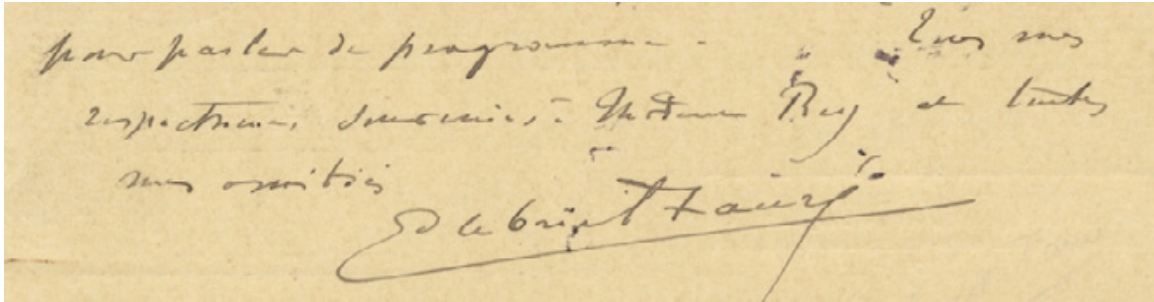 pour parler de programme. Tous mes
respectueux souvenirs à Madame Rey et toutes
mes amitiés
Gabriel Fauré